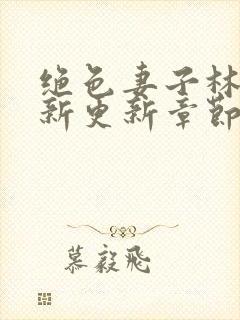 绝色妻子林
新更新章节
慕毅飛